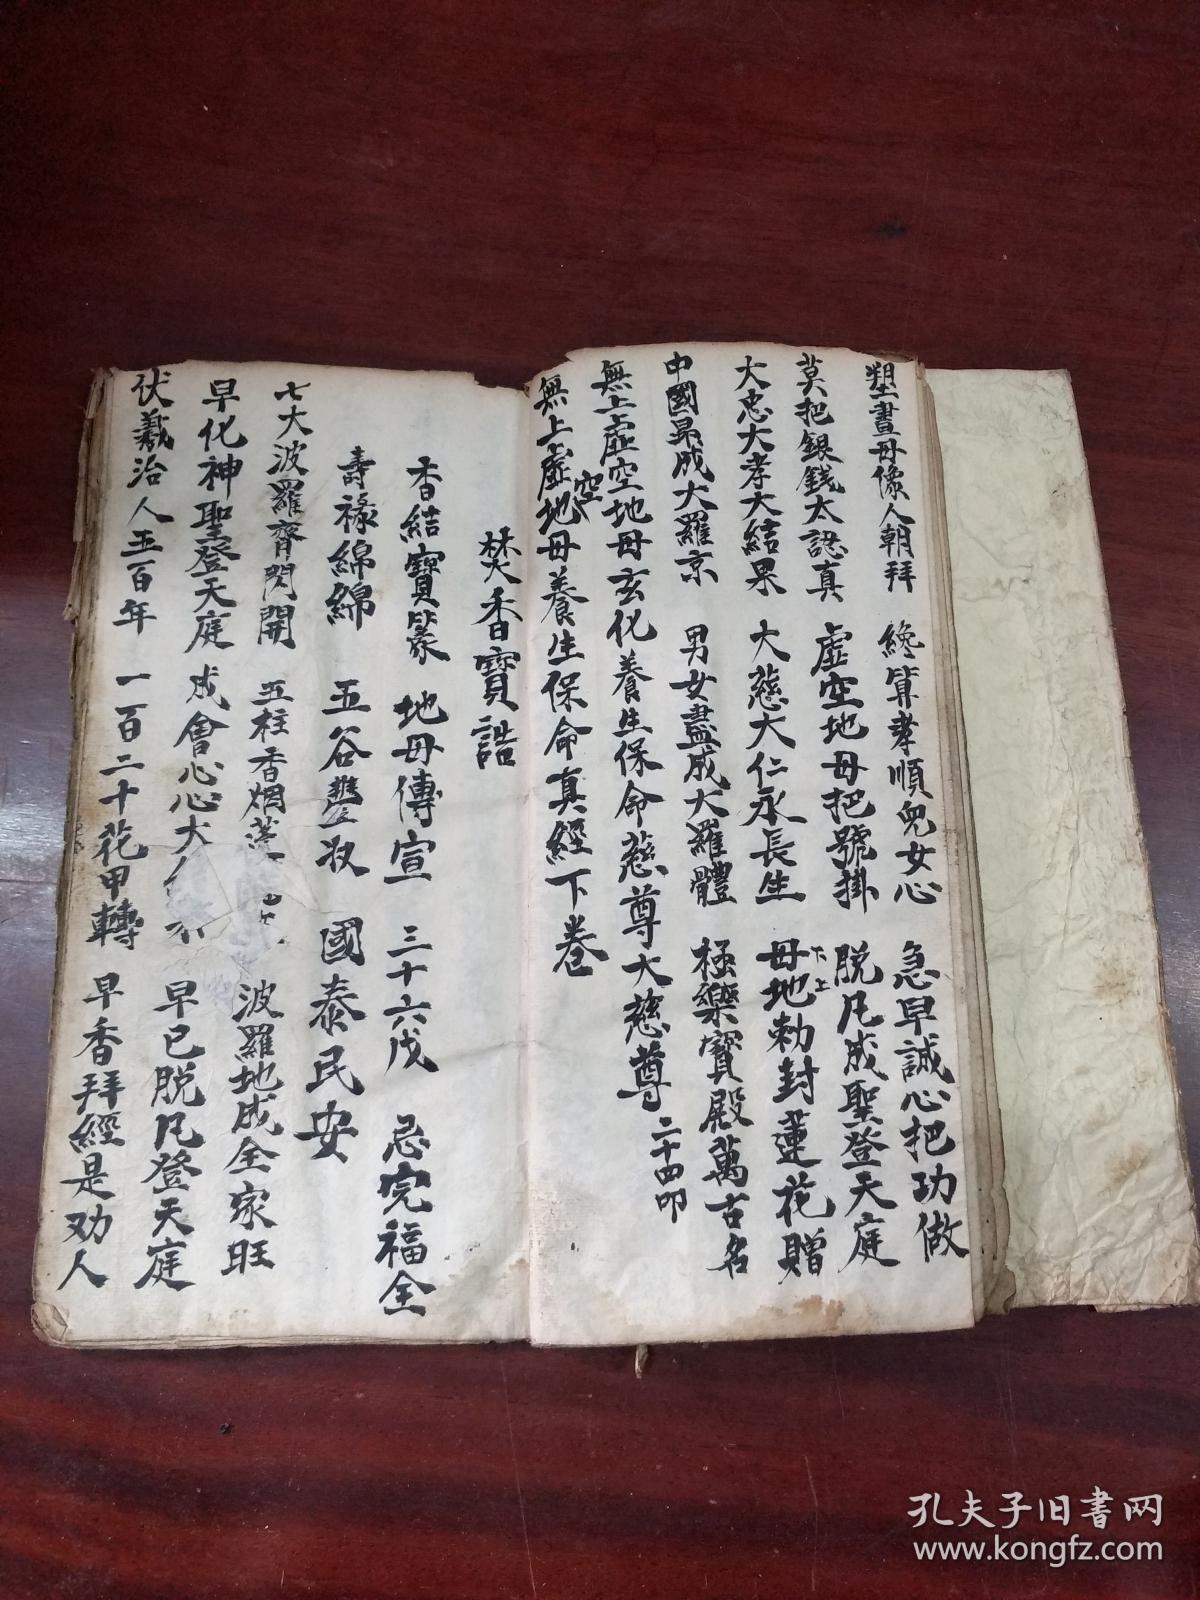 塑畫母像人朝拜 纔算孝順兒女心 急早誠心把功做
莫把銀錢太認真 虛空地母把號掛 脫凡成聖登天庭
大忠大孝大結果 大慈大仁永長生 母地勅封蓮花贈
下上
中國昇成大羅京 男女盡成大羅體 極樂寶殿萬古名
無上虛空地母玄化養生保命慈尊大慈尊 二十四叩
無上虛空地母養生保命真經下卷
焚香寶誥
香結寶篆 地母傳宣 三十六戊 忌完福全
壽祿綿綿 五谷豐收 國泰民安
七大波羅齊閃開 五柱香烟 波羅地成全家旺
早化神聖登天庭 成會心心大 早已脫凡登天庭
伏羲治人五百年 一百二十花甲轉 早香拜經是劝人
孔夫子旧書网
www.kongfz.com